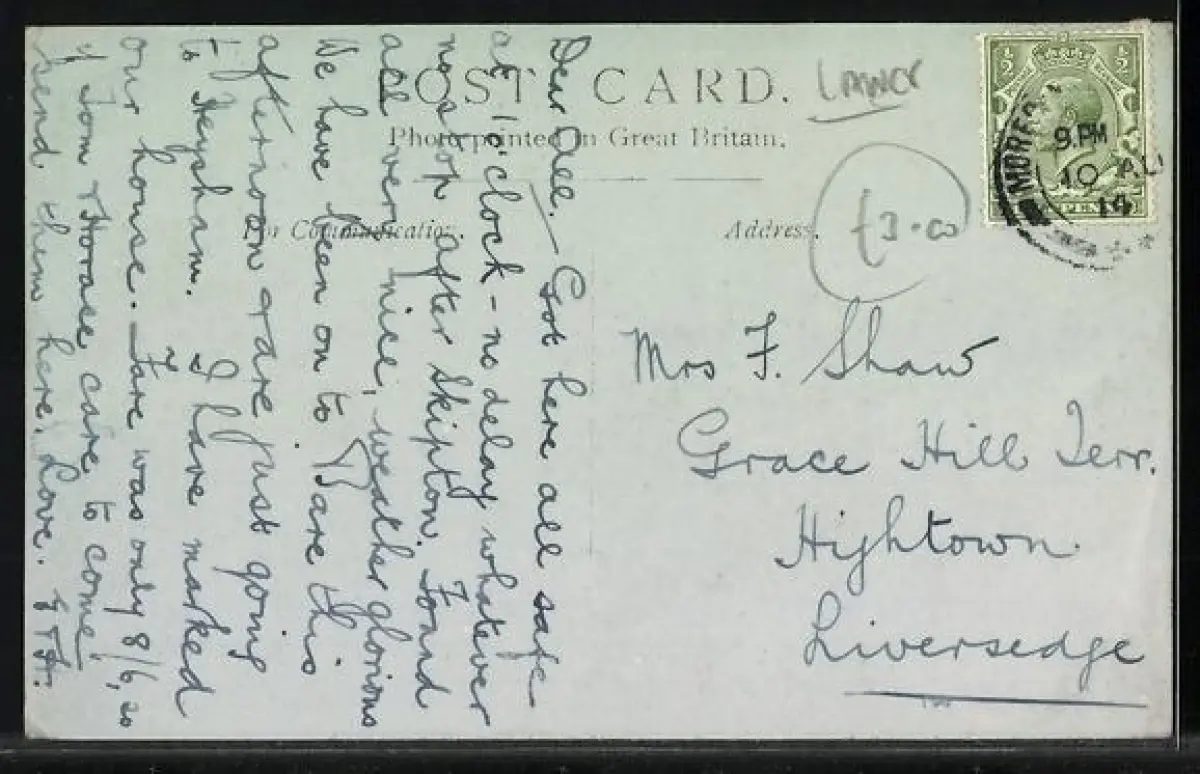 POST CARD.
LANCS
Photo printed in Great Britain.
For Communication.
Address.
£3.00
½ ½
MORE
9.PM
10 AU
14
PENNY
Dear All. Got here all safe
at 1 o'clock - no delay whatever
no stop after Skipton. Found
all very nice, weather glorious
We have been on to Bare this
afternoon & are just going
to Heysham. I have marked
our house. Fare was only 8/6, so
if Tom & Horace care to come
send them here. Love.
Mrs F. Shaw
Grace Hill Terr.
Hightown.
Liversedge